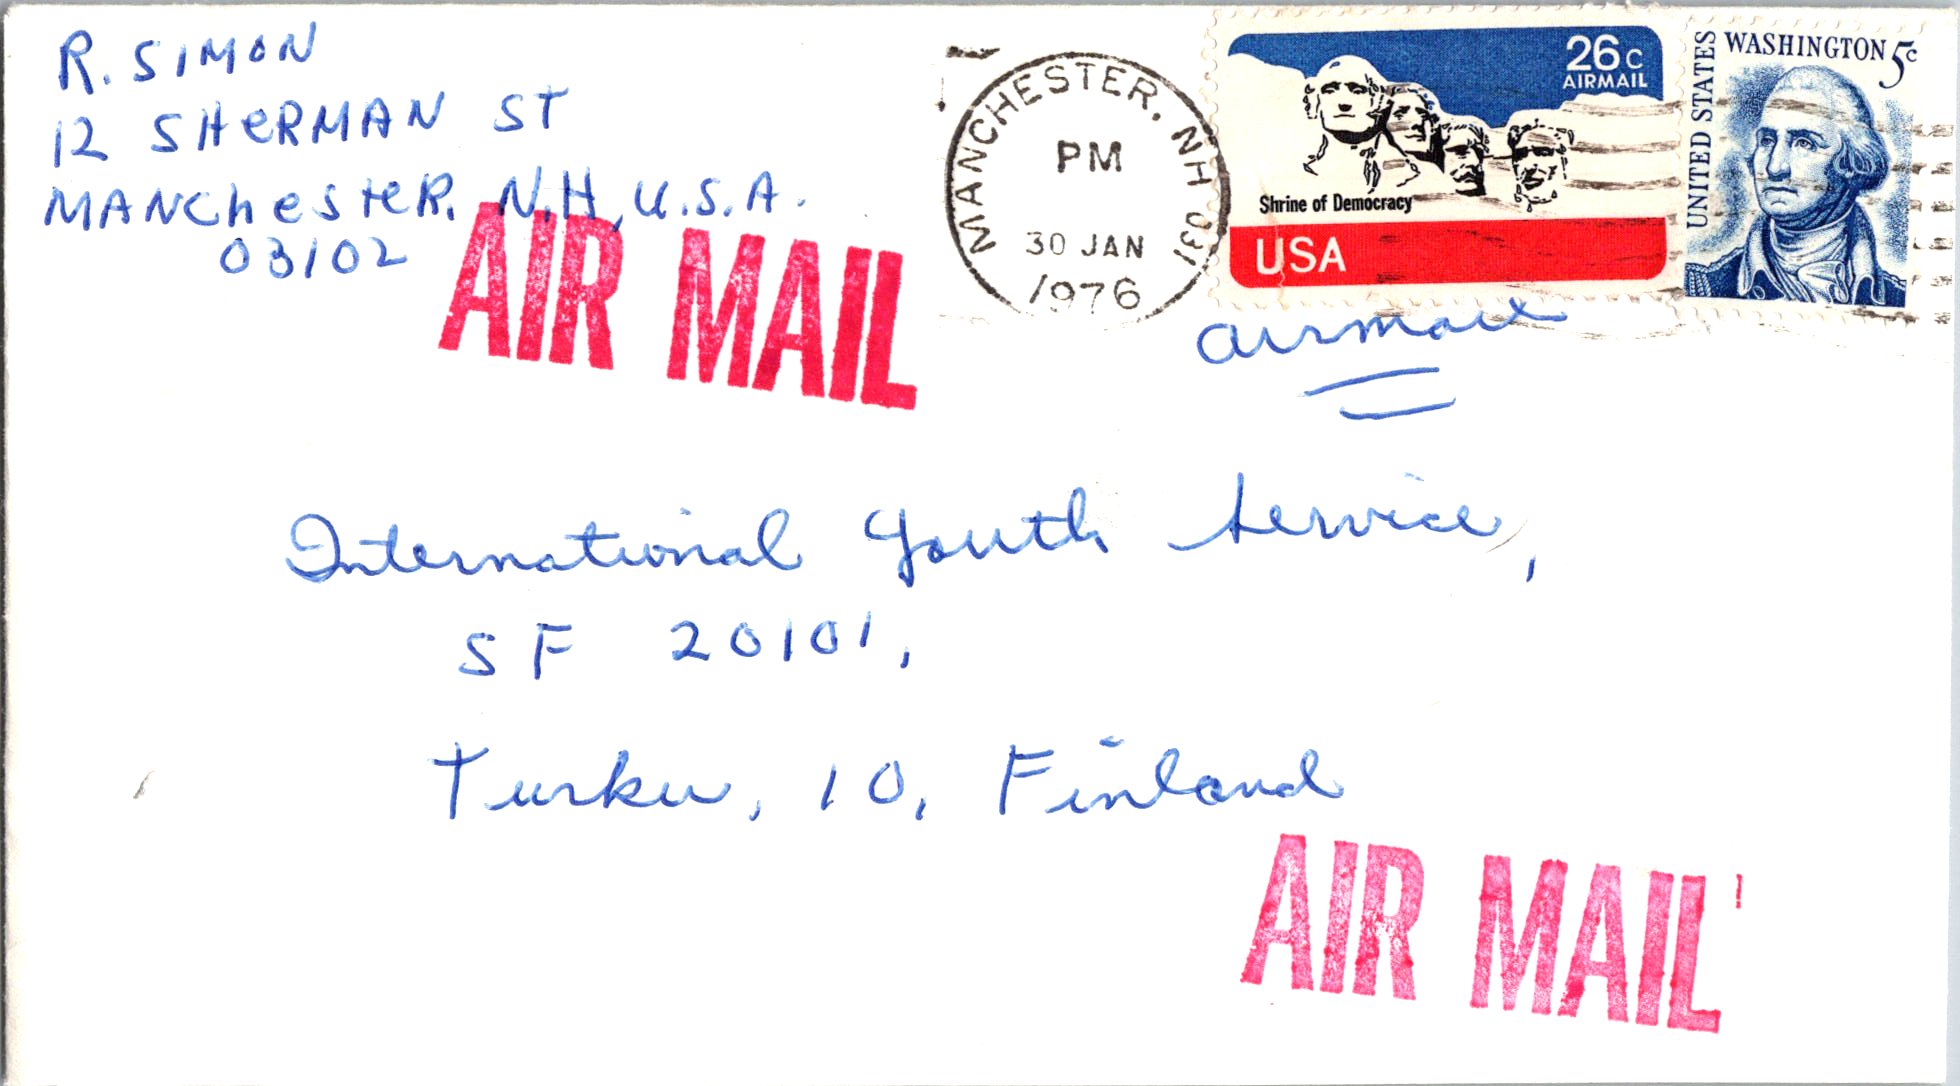 R. SIMON
12 SHERMAN ST
MANCHESTER. N.H, U.S.A.
03102
AIR MAIL
MANCHESTER, NH 031
PM
30 JAN
1976
26c
AIRMAIL
Shrine of Democracy
USA
UNITED STATES
WASHINGTON 5c
airmail
International Youth Service,
SF 20101,
Turku, 10, Finland
AIR MAIL